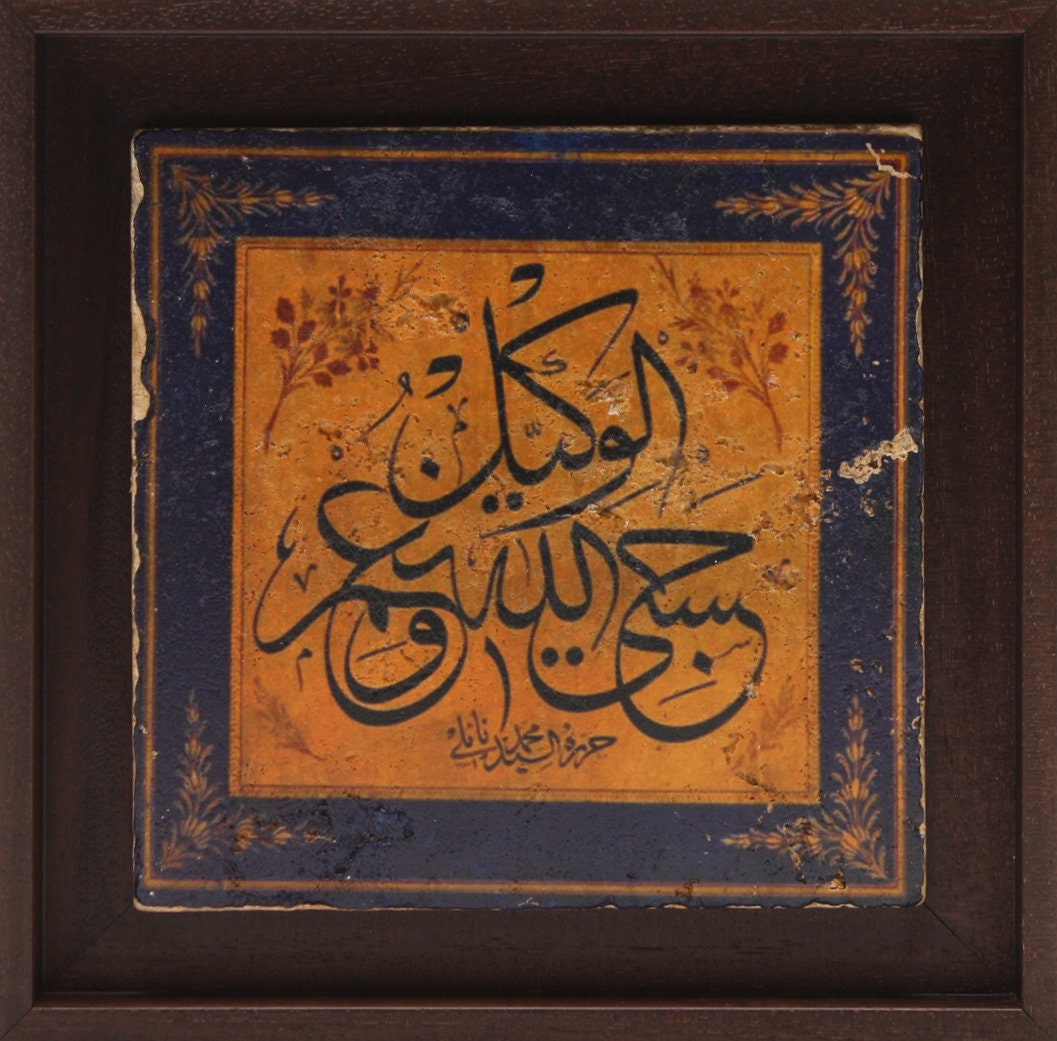 حسبي الله ونعم الوكيل
حرره السيد محمد نائلي